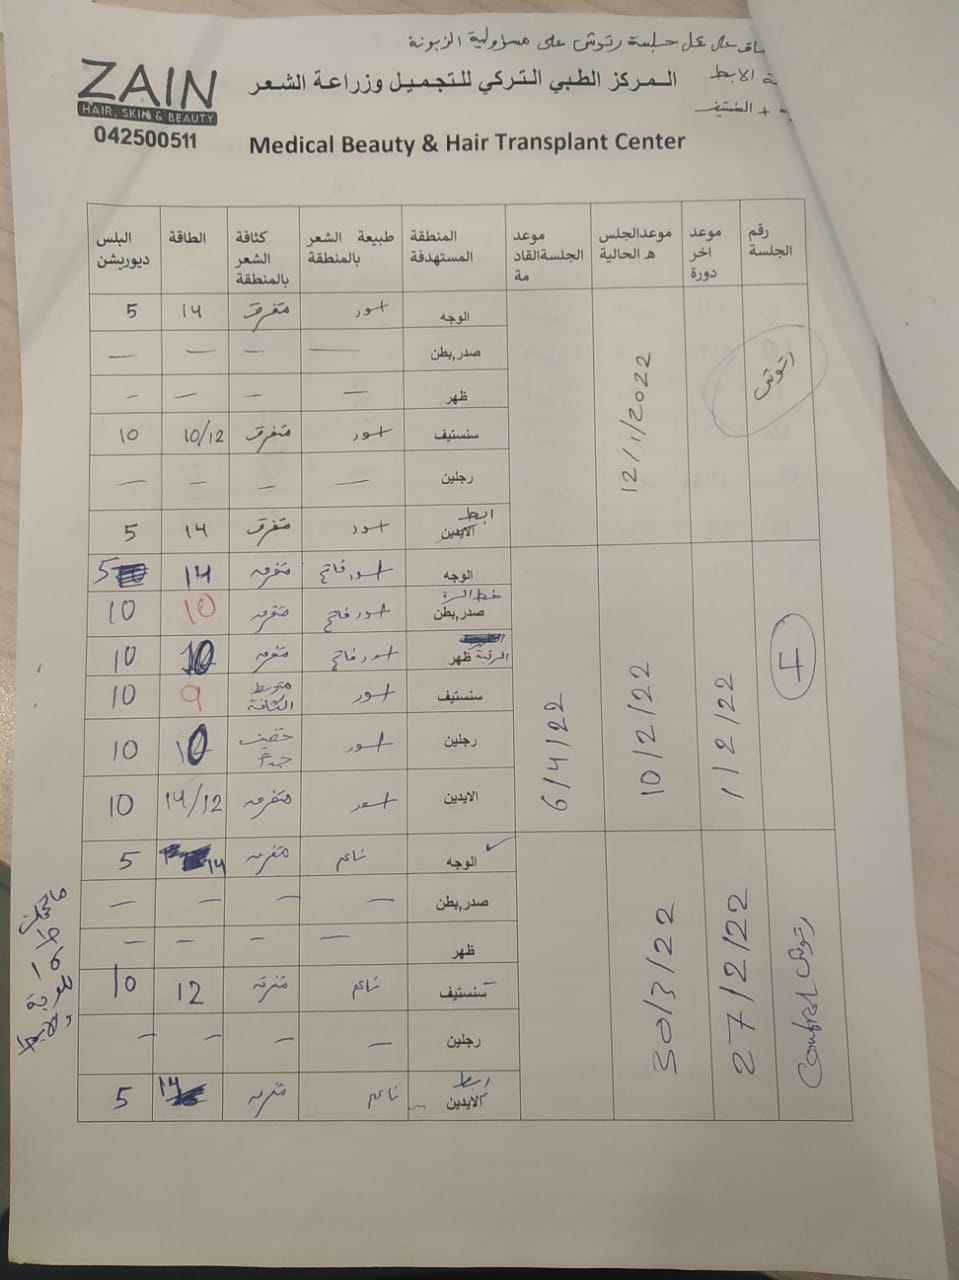 حال عمل جلسة رتوش على مسؤولية الزبونة
الابط
+ السنستيف
ZAIN
HAIR, SKIN & BEAUTY
042500511
المركز الطبي التركي للتجميل وزراعة الشعر
Medical Beauty & Hair Transplant Center
رقم الجلسة موعد اخر دورة موعدالجلسة الحالية موعد الجلسةالقادمة المنطقة المستهدفة طبيعة الشعر بالمنطقة كثافة الشعر بالمنطقة الطاقة البلس ديوريشن
رتوش 12/1/2022
الوجه اسود متفرق 14 5
صدر,بطن — — — —
ظهر — — — —
سنستيف اسود متفرق 10/12 10
رجلين — — — —
ابط الايدين اسود متفرق 14 5
I 1/2/22 10/2/22 6/4/22
الوجه اسود فاتح متفرق 14 5
خط السرة صدر,بطن اسود فاتح متفرق 10 10
الرقبة ظهر اسود فاتح متفرق 10 10
سنستيف اسود متوسط الكثافة 9 10
رجلين اسود خفيف جداً 10 10
الايدين اسود متفرق 14/12 10
رتوش 27/2/22 30/3/22
الوجه ناعم متفرق 14 5
صدر,بطن — — — —
ظهر — — — —
سنستيف ناعم متفرق 12 10
رجلين — — — —
ابط الايدين ناعم متفرق 14 5